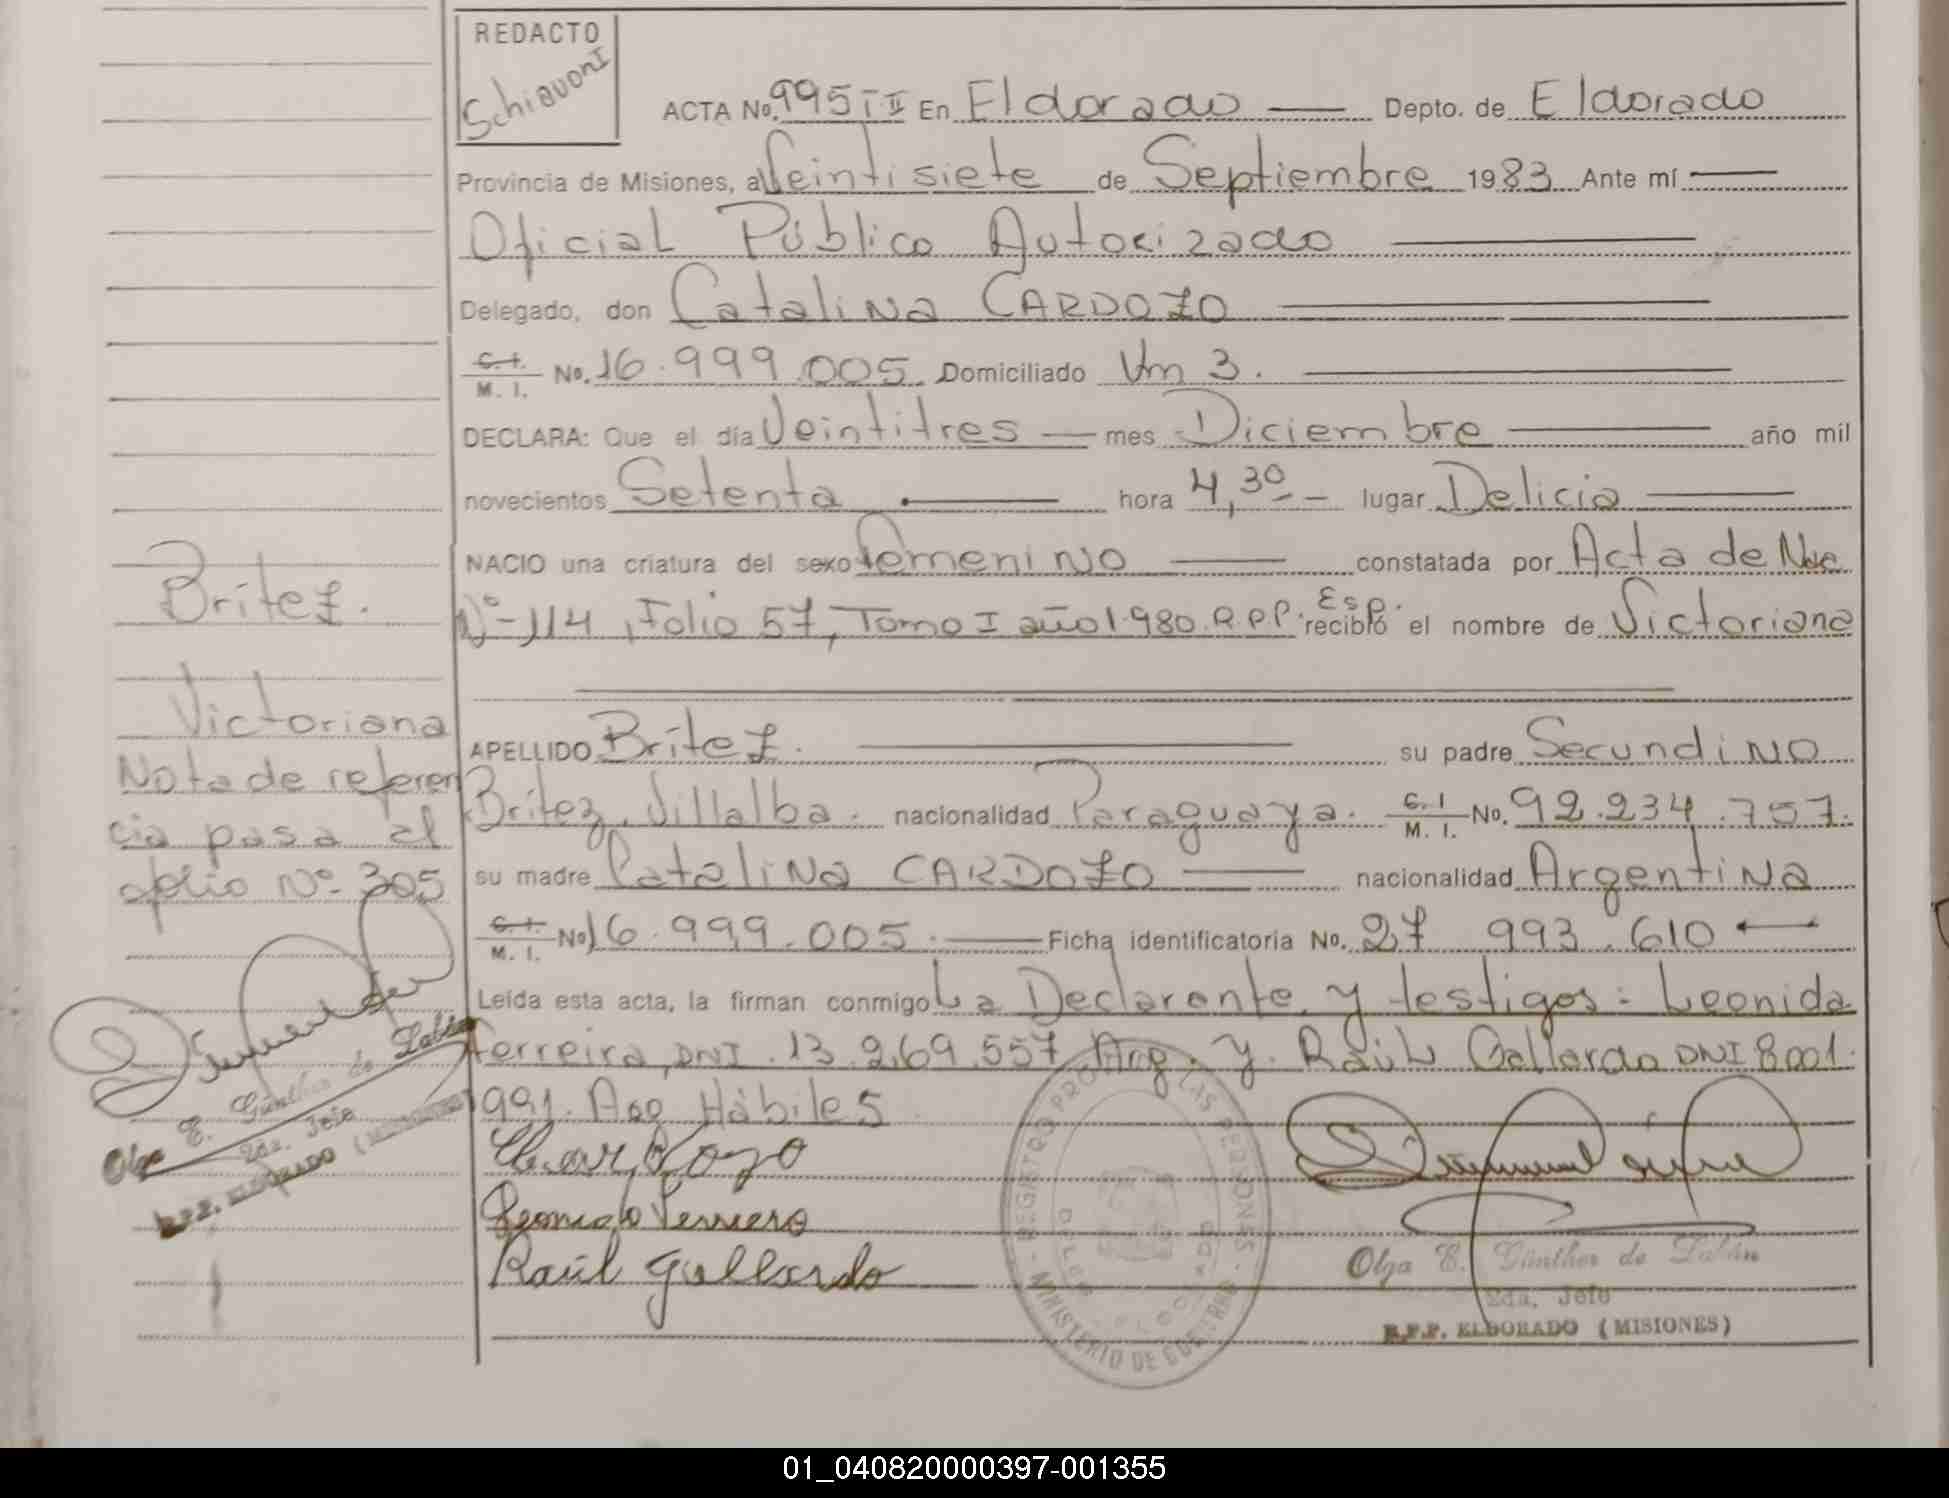 REDACTO
Schiavoni
ACTA No. 995 T II En Eldorado Depto. de Eldorado
Provincia de Misiones, a Veintisiete de Septiembre 1983 Ante mí
Oficial Público Autorizado
Delegado, don Catalina CARDOZO
C.I. M. I. No. 16.999.005. Domiciliado Km 3.
DECLARA: Que el día Veintitres mes Diciembre año mil
novecientos Setenta hora 4,30 lugar Delicia
NACIO una criatura del sexo femenino constatada por Acta de Nac
Nº 114, Folio 57, Tomo I año 1980. R.P.P. Esp. recibió el nombre de Victoriana
APELLIDO Britez. su padre Secundino
Britez Villalba. nacionalidad Paraguaya. C.I M. I. No. 92.234.757.
su madre Catalina CARDOZO nacionalidad Argentina
C.I. M. I. No. 16.999.005. Ficha identificatoria No. 27 993.610
Leída esta acta, la firman conmigo La Declarante y testigos: Leonida
Ferreira, DNI. 13.269.557 Arg. y Raúl Gallardo DNI 8.001.
991. Arg Hábiles
Leonida Ferreira
Raúl Gallardo
Britez.
Victoriana
Nota de referen
cia pasa al
folio Nº 305
Olga E. Günther de
2da. Jefe
R.P.P. ELDORADO (MISIONES)
REGISTRO PROV. DE LAS PERSONAS
MINISTERIO DE GOBIERNO
ELDORADO
Olga E. Günther de
2da. Jefe
R.P.P. ELDORADO (MISIONES)
01_040820000397-001355